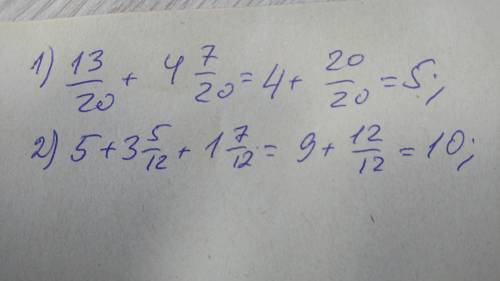 1) 13/20 + 4 7/20 = 4 + 20/20 = 5;
2) 5 + 3 5/12 + 1 7/12 = 9 + 12/12 = 10;